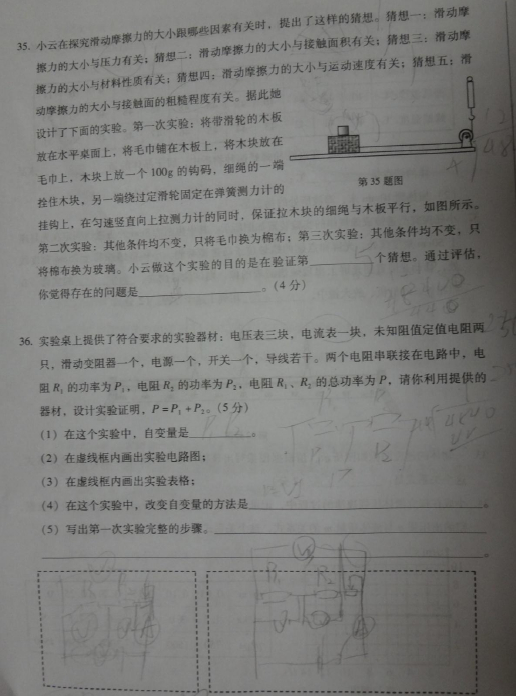 35. 小云在探究滑动摩擦力的大小跟哪些因素有关时，提出了这样的猜想。猜想一：滑动摩
擦力的大小与压力有关；猜想二：滑动摩擦力的大小与接触面积有关；猜想三：滑动摩
擦力的大小与材料性质有关；猜想四：滑动摩擦力的大小与运动速度有关；猜想五：滑
动摩擦力的大小与接触面的粗糙程度有关。据此她
设计了下面的实验。第一次实验：将带滑轮的木板
放在水平桌面上，将毛巾铺在木板上，将木块放在
毛巾上，木块上放一个100g的钩码，细绳的一端
拴住木块，另一端绕过定滑轮固定在弹簧测力计的
挂钩上，在匀速竖直向上拉测力计的同时，保证拉木块的细绳与木板平行，如图所示。
第二次实验：其他条件均不变，只将毛巾换为棉布；第三次实验：其他条件均不变，只
将棉布换为玻璃。小云做这个实验的目的是在验证第________个猜想。通过评估，
你觉得存在的问题是________________。（4分）
第35题图
36. 实验桌上提供了符合要求的实验器材：电压表三块，电流表一块，未知阻值定值电阻两
只，滑动变阻器一个，电源一个，开关一个，导线若干。两个电阻串联接在电路中，电
阻R₁的功率为P₁，电阻R₂的功率为P₂，电阻R₁、R₂的总功率为P，请你利用提供的
器材，设计实验证明，P=P₁+P₂。（5分）
（1）在这个实验中，自变量是________。
（2）在虚线框内画出实验电路图；
（3）在虚线框内画出实验表格；
（4）在这个实验中，改变自变量的方法是________________。
（5）写出第一次实验完整的步骤。________________